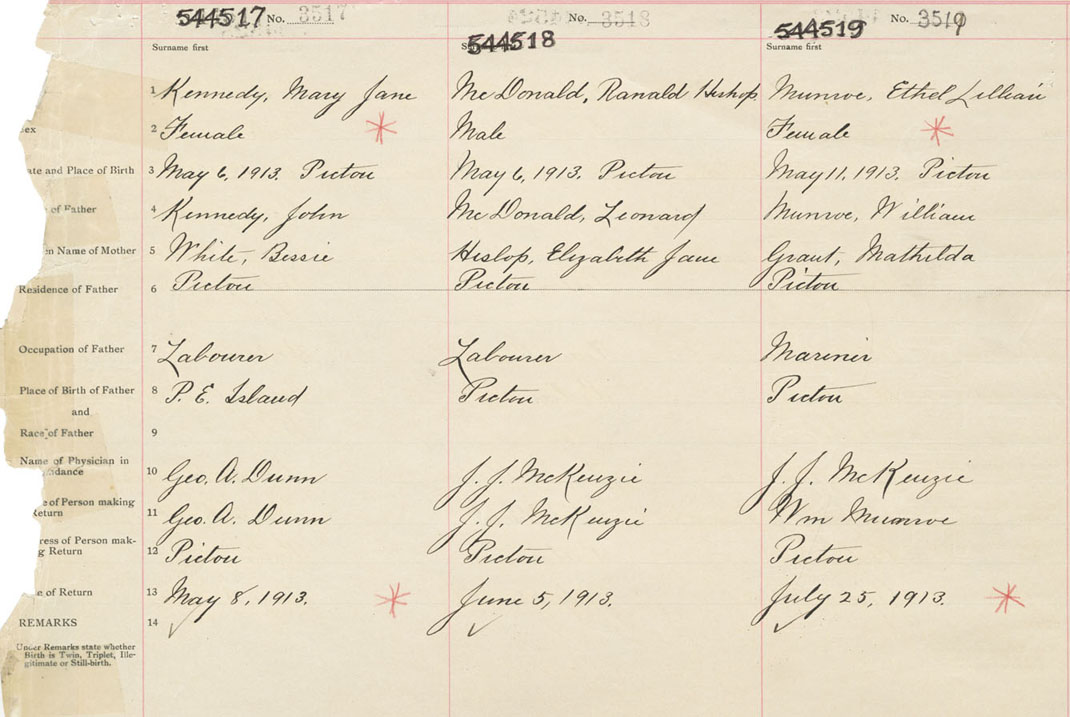 544517 No. 3517
No. 3518
544519 No. 3519
544518
Surname first
Surname first
1 Kennedy, Mary Jane
McDonald, Ranald Hislop
Munroe, Ethel Lillian
ex
2 Female
Male
Female
ate and Place of Birth
3 May 6, 1913. Pictou
May 6, 1913. Pictou
May 11, 1913. Pictou
of Father
4 Kennedy, John
McDonald, Leonard
Munroe, William
n Name of Mother
5 White, Bessie
Hislop, Elizabeth Jane
Grant, Mathilda
Residence of Father
6 Pictou
Pictou
Pictou
Occupation of Father
7 Labourer
Labourer
Mariner
Place of Birth of Father
8 P. E. Island
Pictou
Pictou
and
Race of Father
9
Name of Physician in
dance
10 Geo. A. Dunn
J. J. McKenzie
J. J. McKenzie
e of Person making
Return
11 Geo. A. Dunn
J. J. McKenzie
Wm Munroe
ress of Person mak-
g Return
12 Pictou
Pictou
Pictou
e of Return
13 May 8, 1913.
June 5, 1913.
July 25, 1913.
REMARKS
14
Under Remarks state whether
Birth is Twin, Triplet, Ille-
gitimate or Still-birth.